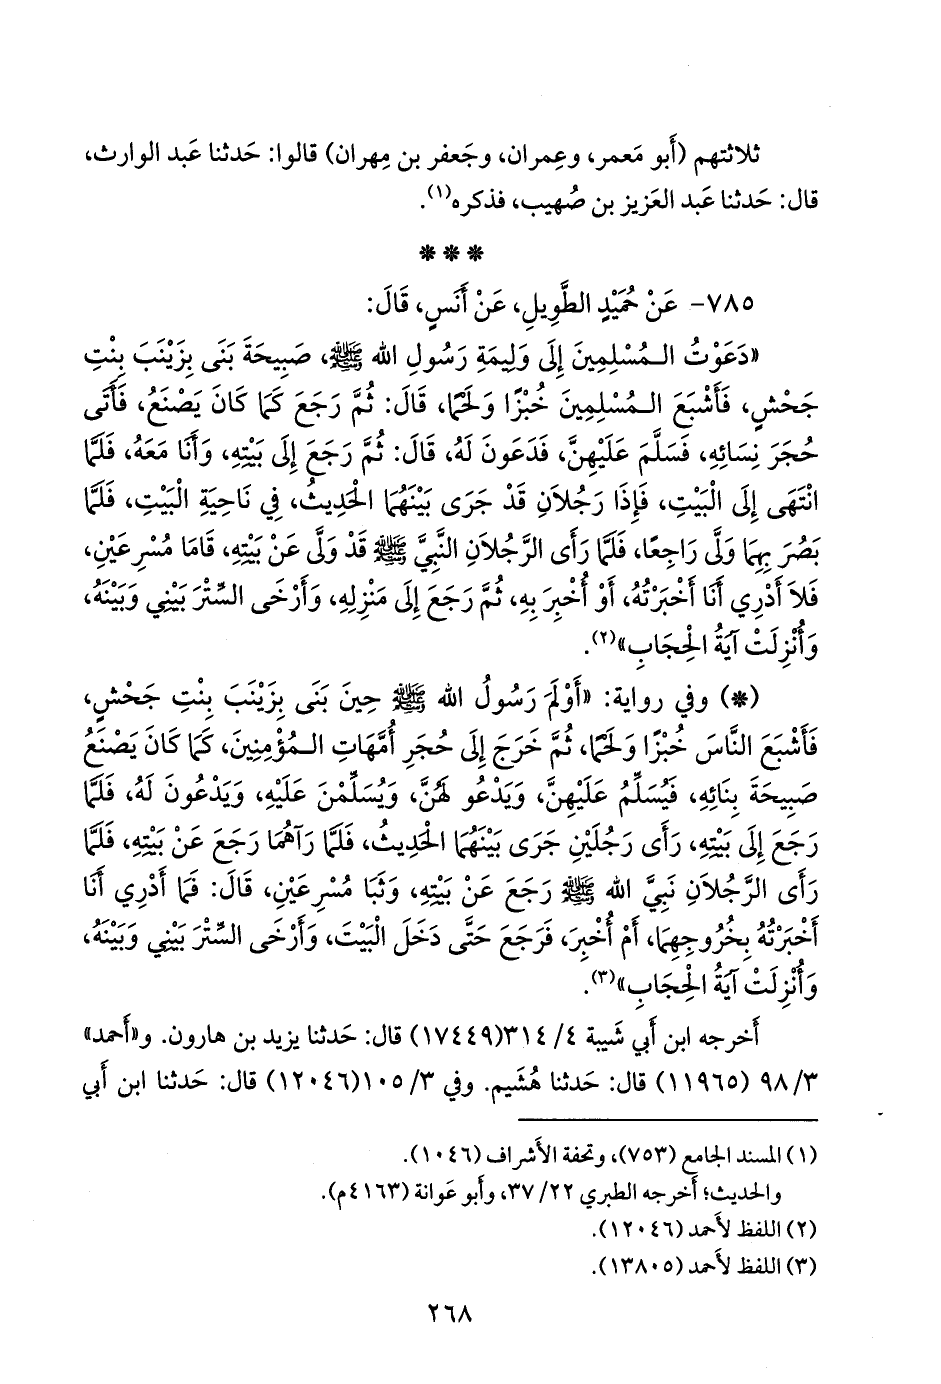 ثلاثتهم (أَبو مَعمر، وعِمران، وجَعفر بن مِهران) قالوا: حَدثنا عَبد الوارث،
قال: حَدثنا عَبد العَزيز بن صُهيب، فذكره(١).
***
٧٨٥- عَنْ حُمَيْدٍ الطَّوِيلِ، عَنْ أَنَسٍ، قَالَ:
«دَعَوْتُ الـمُسْلِمِينَ إِلَى وَلِيمَةِ رَسُولِ الله ﷺ، صَبِيحَةَ بَنَى بِزَيْنَبَ بِنْتِ
جَحْشٍ، فَأَشْبَعَ الـمُسْلِمِينَ خُبْزًا وَلَحْمًا، قَالَ: ثُمَّ رَجَعَ كَمَا كَانَ يَصْنَعُ، فَأَتَى
حُجَرَ نِسَائِهِ، فَسَلَّمَ عَلَيْهِنَّ، فَدَعَوْنَ لَهُ، قَالَ: ثُمَّ رَجَعَ إِلَى بَيْتِهِ، وَأَنَا مَعَهُ، فَلَمَّا
انْتَهَى إِلَى الْبَيْتِ، فَإِذَا رَجُلاَنِ قَدْ جَرَى بَيْنَهُمَا الْحَدِيثُ، فِي نَاحِيَةِ الْبَيْتِ، فَلَمَّا
بَصُرَ بِهِمَا وَلَّى رَاجِعًا، فَلَمَّا رَأَى الرَّجُلاَنِ النَّبِيَّ ﷺ قَدْ وَلَّى عَنْ بَيْتِهِ، قَامَا مُسْرِعَيْنِ،
فَلاَ أَدْرِي أَنَا أَخْبَرْتُهُ، أَوْ أُخْبِرَ بِهِ، ثُمَّ رَجَعَ إِلَى مَنْزِلِهِ، وَأَرْخَى السِّتْرَ بَيْنِي وَبَيْنَهُ،
وَأُنْزِلَتْ آيَةُ الْحِجَابِ»(٢).
(*) وفي رواية: «أَوْلَمَ رَسُولُ الله ﷺ حِينَ بَنَى بِزَيْنَبَ بِنْتِ جَحْشٍ،
فَأَشْبَعَ النَّاسَ خُبْزًا وَلَحْمًا، ثُمَّ خَرَجَ إِلَى حُجَرِ أُمَّهَاتِ الـمُؤْمِنِينَ، كَمَا كَانَ يَصْنَعُ
صَبِيحَةَ بِنَائِهِ، فَيُسَلِّمُ عَلَيْهِنَّ، وَيَدْعُو لَهُنَّ، وَيُسَلِّمْنَ عَلَيْهِ، وَيَدْعُونَ لَهُ، فَلَمَّا
رَجَعَ إِلَى بَيْتِهِ، رَأَى رَجُلَيْنِ جَرَى بَيْنَهُمَا الْحَدِيثُ، فَلَمَّا رَآهُمَا رَجَعَ عَنْ بَيْتِهِ، فَلَمَّا
رَأَى الرَّجُلاَنِ نَبِيَّ الله ﷺ رَجَعَ عَنْ بَيْتِهِ، وَثَبَا مُسْرِعَيْنِ، قَالَ: فَمَا أَدْرِي أَنَا
أَخْبَرْتُهُ بِخُرُوجِهِمَا، أَمْ أُخْبِرَ، فَرَجَعَ حَتَّى دَخَلَ الْبَيْتَ، وَأَرْخَى السِّتْرَ بَيْنِي وَبَيْنَهُ،
وَأُنْزِلَتْ آيَةُ الْحِجَابِ»(٣).
أَخرجه ابن أَبي شَيبة ٤/ ٣١٤(١٧٤٤٩) قال: حَدثنا يزيد بن هارون. و«أَحمد»
٣/ ٩٨ (١١٩٦٥) قال: حَدثنا هُشَيم. وفي ٣/ ١٠٥(١٢٠٤٦) قال: حَدثنا ابن أَبي
(١) المسند الجامع (٧٥٣)، وتحفة الأَشراف (١٠٤٦).
والحديث؛ أَخرجه الطبري ٢٢/ ٣٧، وأَبو عَوانة (٤١٦٣م).
(٢) اللفظ لأَحمد (١٢٠٤٦).
(٣) اللفظ لأَحمد (١٣٨٠٥).
٢٦٨